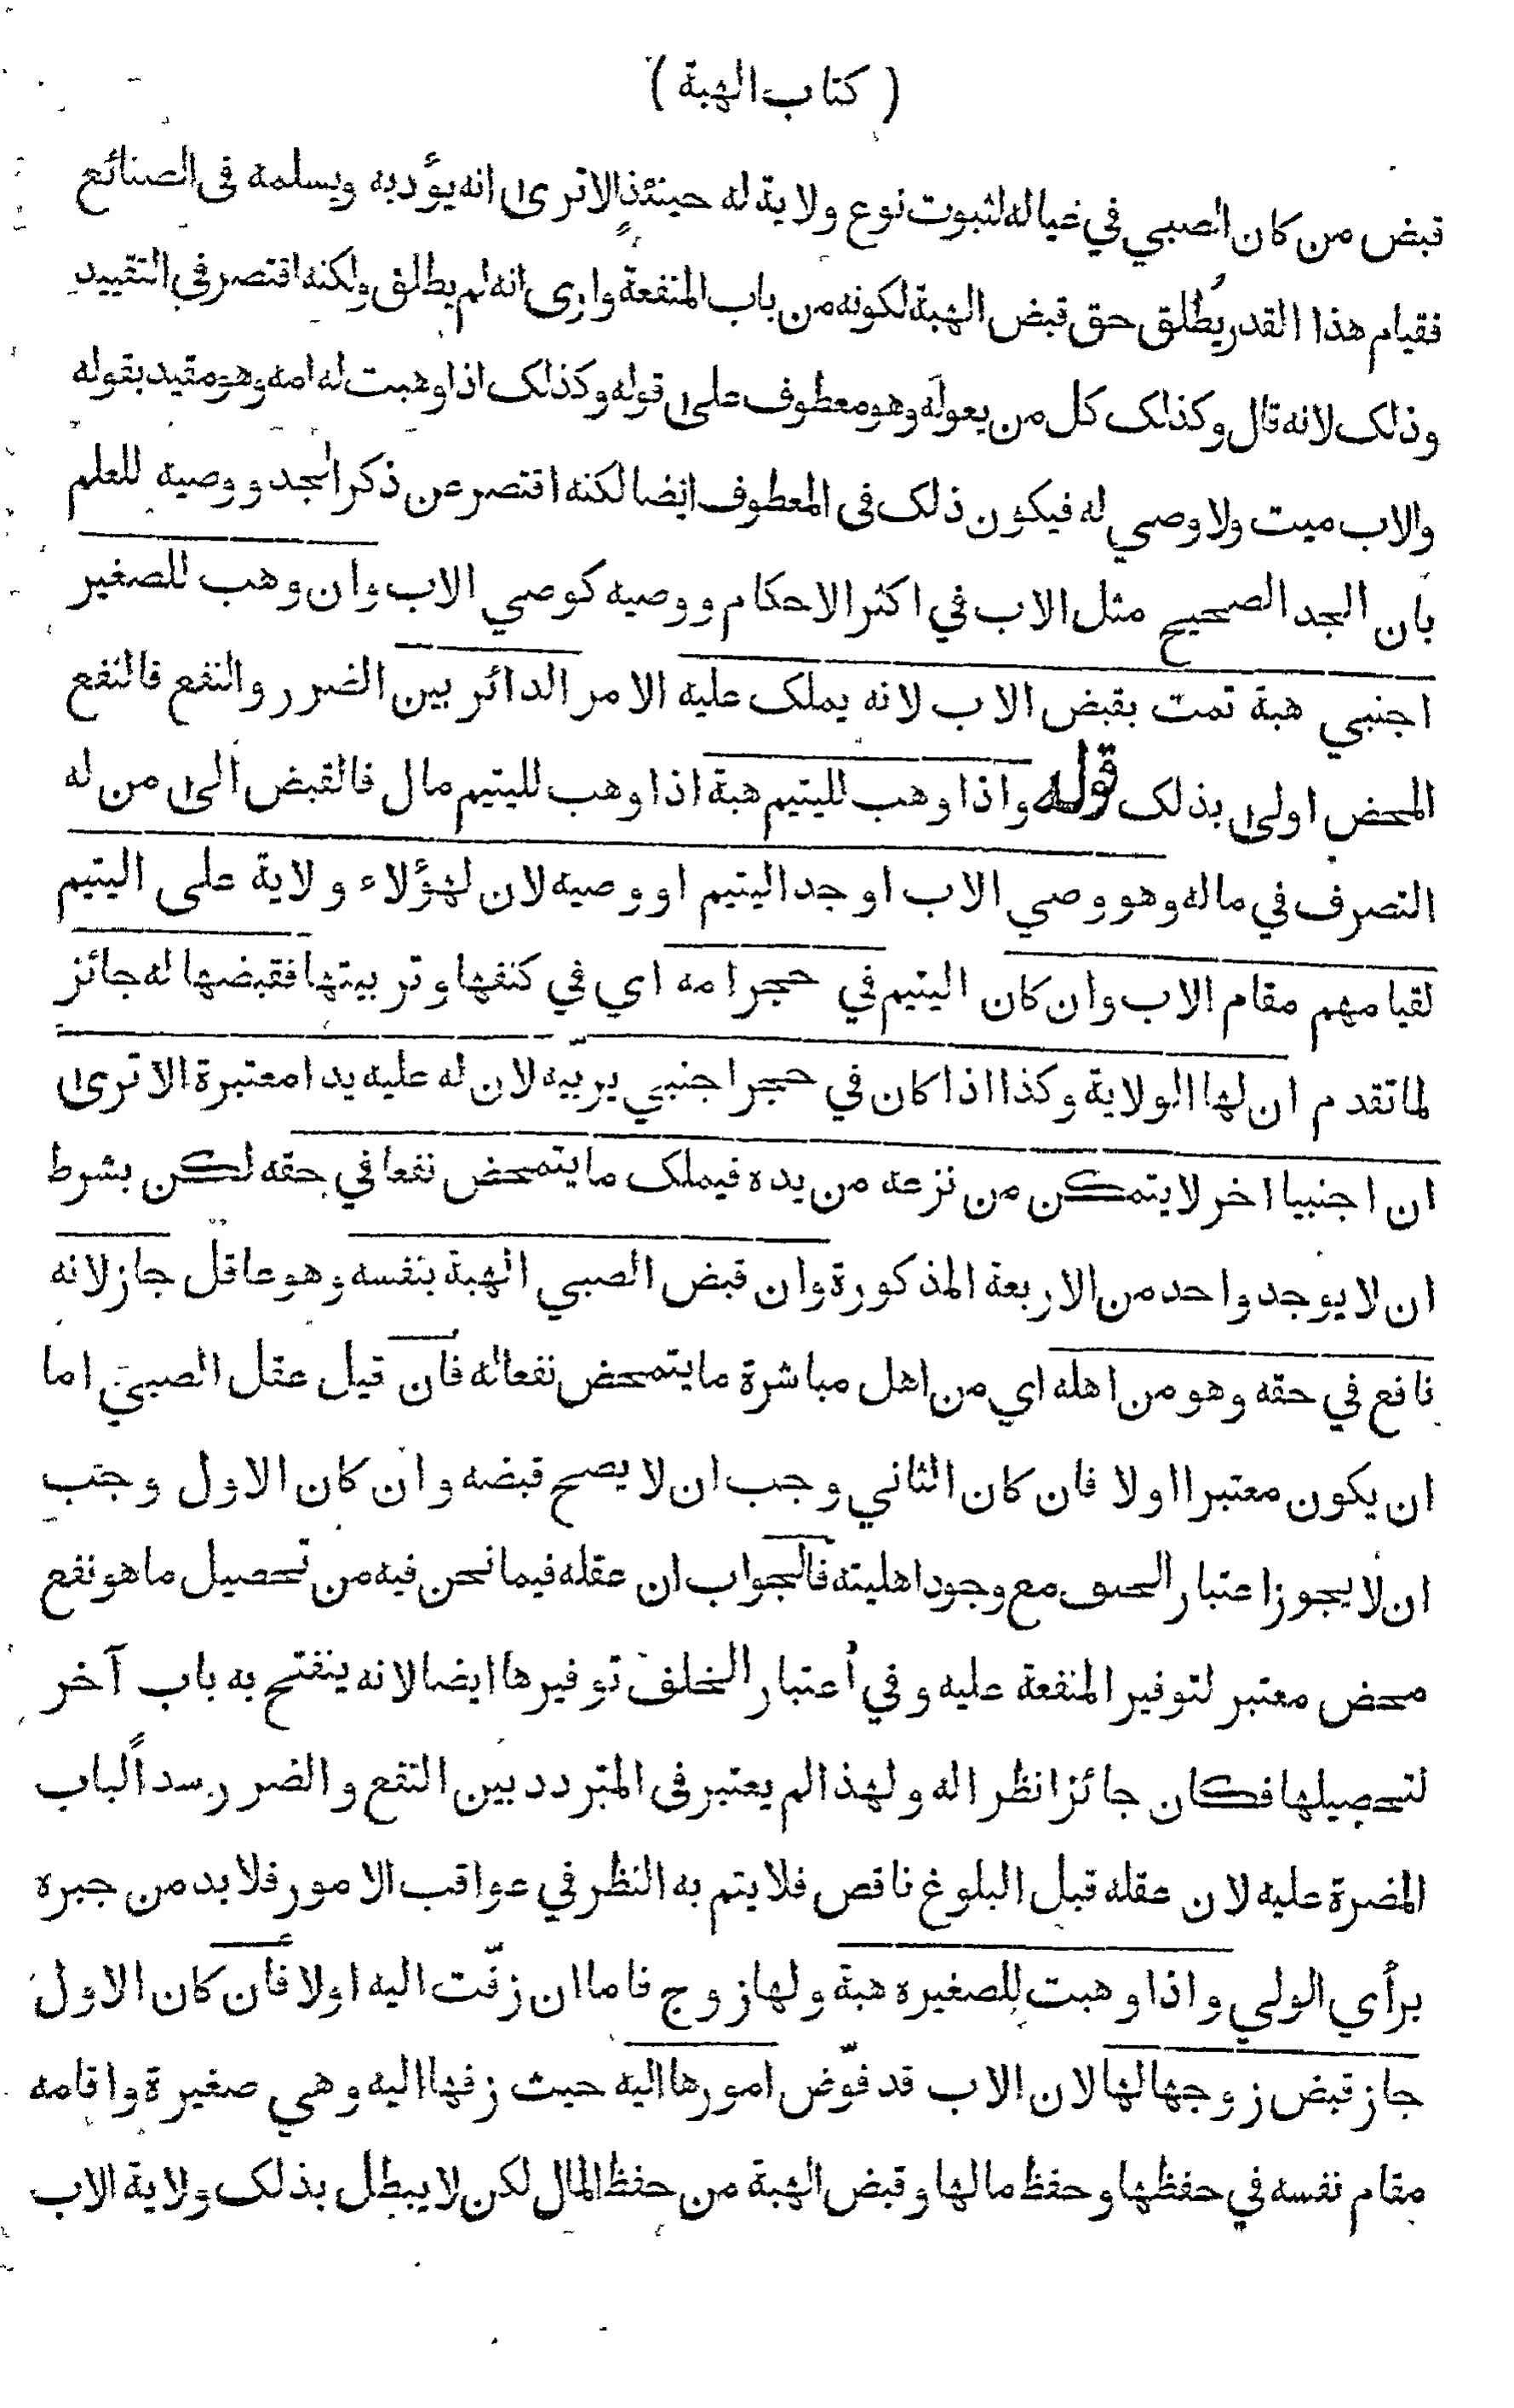 ( كتاب الهبة )
قبض من كان الصبي في عياله لثبوت نوع ولاية له حينئذ الا ترى انه يؤدبه ويسلمه فى الصنائع
فقيام هذا القدر يُطلق حق قبض الهبة لكونه من باب المنفعة وارى انه لم يطلق ولكنه اقتصر فى التقييد
وذلك لانه قال وكذلك كل من يعوله وهو معطوف على قوله وكذلك اذا وهبت له امه وهو مقيد بقوله
والاب ميت ولا وصي له فيكون ذلك فى المعطوف ايضا لكنه اقتصر عن ذكر الجد ووصيه للعلم
بأن الجد الصحيح مثل الاب في اكثر الاحكام ووصيه كوصي الاب وان وهب للصغير
اجنبي هبة تمت بقبض الاب لانه يملك عليه الامر الدائر بين الضرر والنفع فالنفع
المحض اولى بذلك قوله واذا وهب لليتيم هبة اذا وهب لليتيم مال فالقبض الى من له
التصرف في ماله وهو وصي الاب او جد اليتيم او وصيه لان لهؤلاء ولاية على اليتيم
لقيامهم مقام الاب وان كان اليتيم في حجر امه اي في كنفها وتربيتها فقبضها له جائز
لما تقدم ان لها الولاية وكذا اذا كان في حجر اجنبي يربّيه لان له عليه يدا معتبرة الا ترى
ان اجنبيا اخر لا يتمكن من نزعه من يده فيملك ما يتمحض نفعا في حقه لكن بشرط
ان لا يوجد واحد من الاربعة المذكورة وان قبض الصبي الهبة بنفسه وهو عاقل جاز لانه
نافع في حقه وهو من اهله اي من اهل مباشرة ما يتمحض نفعا له فان قيل عقل الصبي اما
ان يكون معتبرا اولا فان كان الثاني وجب ان لا يصح قبضه وان كان الاول وجب
ان لا يجوز اعتبار مع وجود اهليته فالجواب ان عقله فيما نحن فيه من تحصيل ما هو نفع
محض معتبر لتوفير المنفعة عليه وفي اعتبار الخلف توفيرها ايضا لانه ينفتح به باب آخر
لتحصيلها فكان جائزا نظرا له ولهذا لم يعتبر فى المتردد بين النفع والضرر سداً لباب
المضرة عليه لان عقله قبل البلوغ ناقص فلا يتم به النظر في عواقب الامور فلا بد من جبره
برأي الولي واذا وهبت للصغيره هبة ولها زوج فاما ان زفّت اليه اولا فأن كان الاول
جاز قبض زوجها لها لان الاب قد فوّض امورها اليه حيث زفها اليه وهي صغيرة واقامه
مقام نفسه في حفظها وحفظ مالها وقبض الهبة من حفظ المال لكن لا يبطل بذلك ولاية الاب